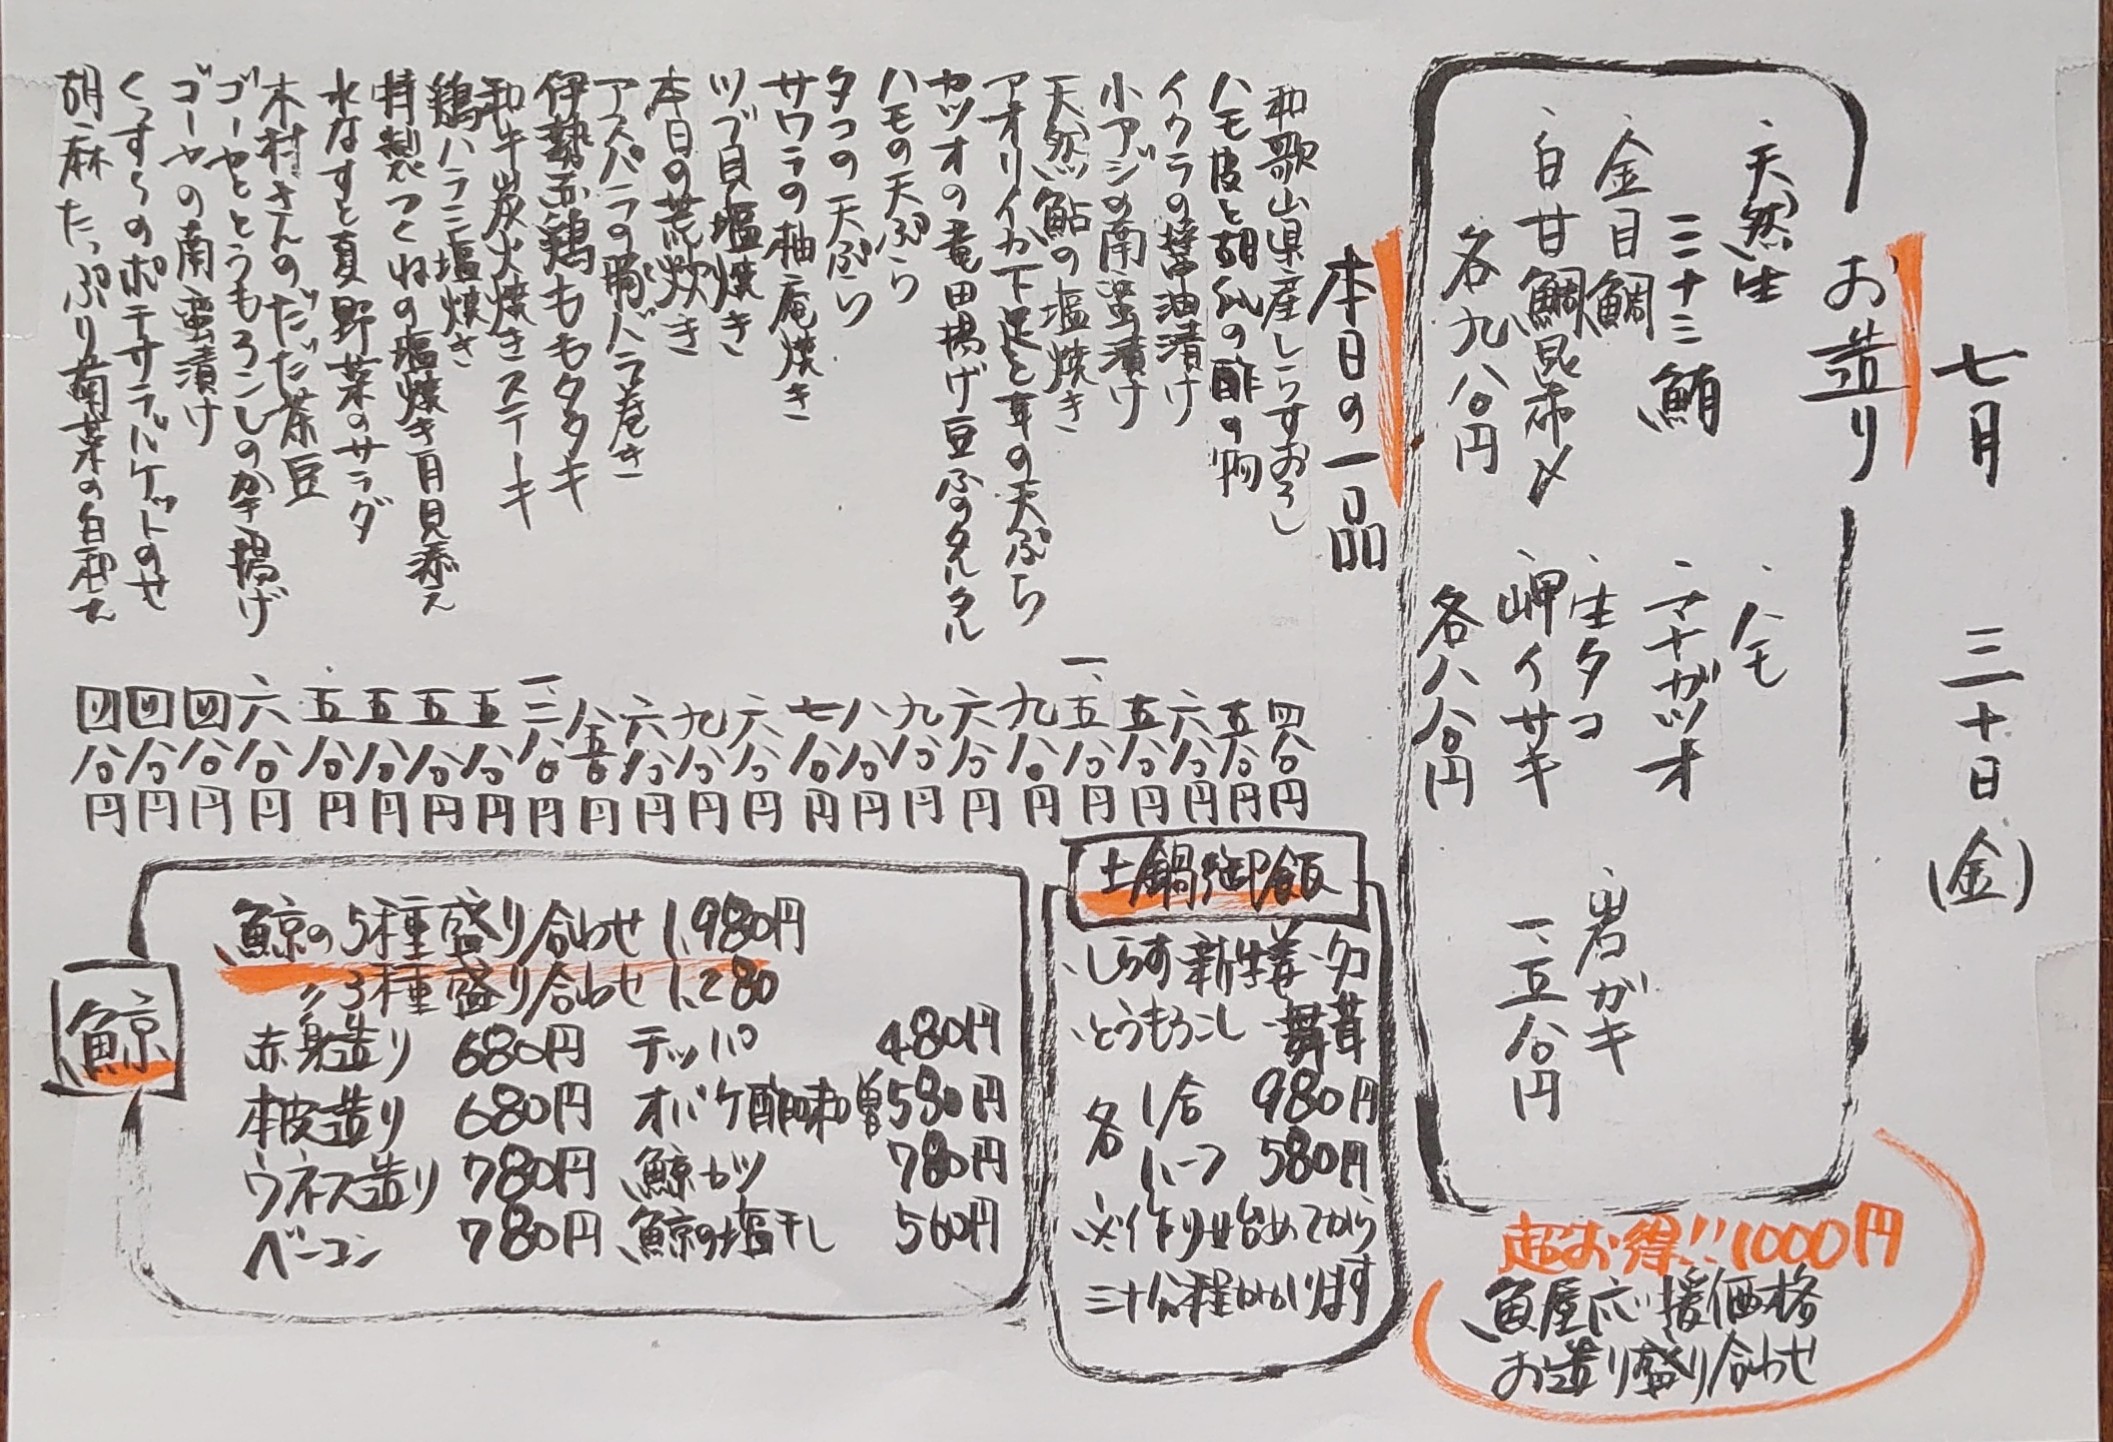 七月 三十日(金)
お造り
・天然生
ミナミ鮪
・金目鯛
・白甘鯛昆布〆
各九八〇円
・ハモ
・マナガツオ
・生タコ
・岬イサキ
各八八〇円
・岩ガキ
一、五八〇円
超お得!!1000円
魚屋応援価格
お造り盛り合わせ
本日の一品
和歌山県産しらすおろし 四八〇円
ハモ皮と胡瓜の酢の物 五八〇円
イクラの醤油漬け 六八〇円
小アジの南蛮漬け 五八〇円
天然鮎の塩焼き 一、五八〇円
アオリイカ下足と耳の天ぷら 九八〇円
カツオの竜田揚げ豆ふのタルタル 六八〇円
ハモの天ぷら 九八〇円
タコの天ぷら 八八〇円
サワラの柚庵焼き 七八〇円
ツブ貝塩焼き 六八〇円
本日の荒炊き 九八〇円
アスパラの豚バラ巻き 六八〇円
伊勢赤鶏ももタタキ 八五〇円
和牛炭火焼きステーキ 一、二八〇円
鶏ハラミ塩焼き 五八〇円
特製つくねの塩焼き月見添え 五八〇円
水なすと夏野菜のサラダ 五八〇円
木村さんのだだ茶豆 五八〇円
ゴーヤととうもろこしの掻揚げ 六八〇円
ゴーヤの南蛮漬け 四八〇円
くずしのポテサラバケットのせ 四八〇円
胡麻たっぷり菊菜の白和え 四八〇円
土鍋御飯
・しらす・新生姜・タコ
・とうもろこし・舞茸
各 1合 980円
ハーフ 580円
※作り始めてから
三十分程かかります
鯨
鯨の5種盛り合わせ 1,980円
〃3種盛り合わせ 1,280
赤身造り 680円 テッパ 480円
本皮造り 680円 オバケ酢味噌 580円
ウネス造り 780円 鯨カツ 780円
ベーコン 780円 鯨の塩干し 560円